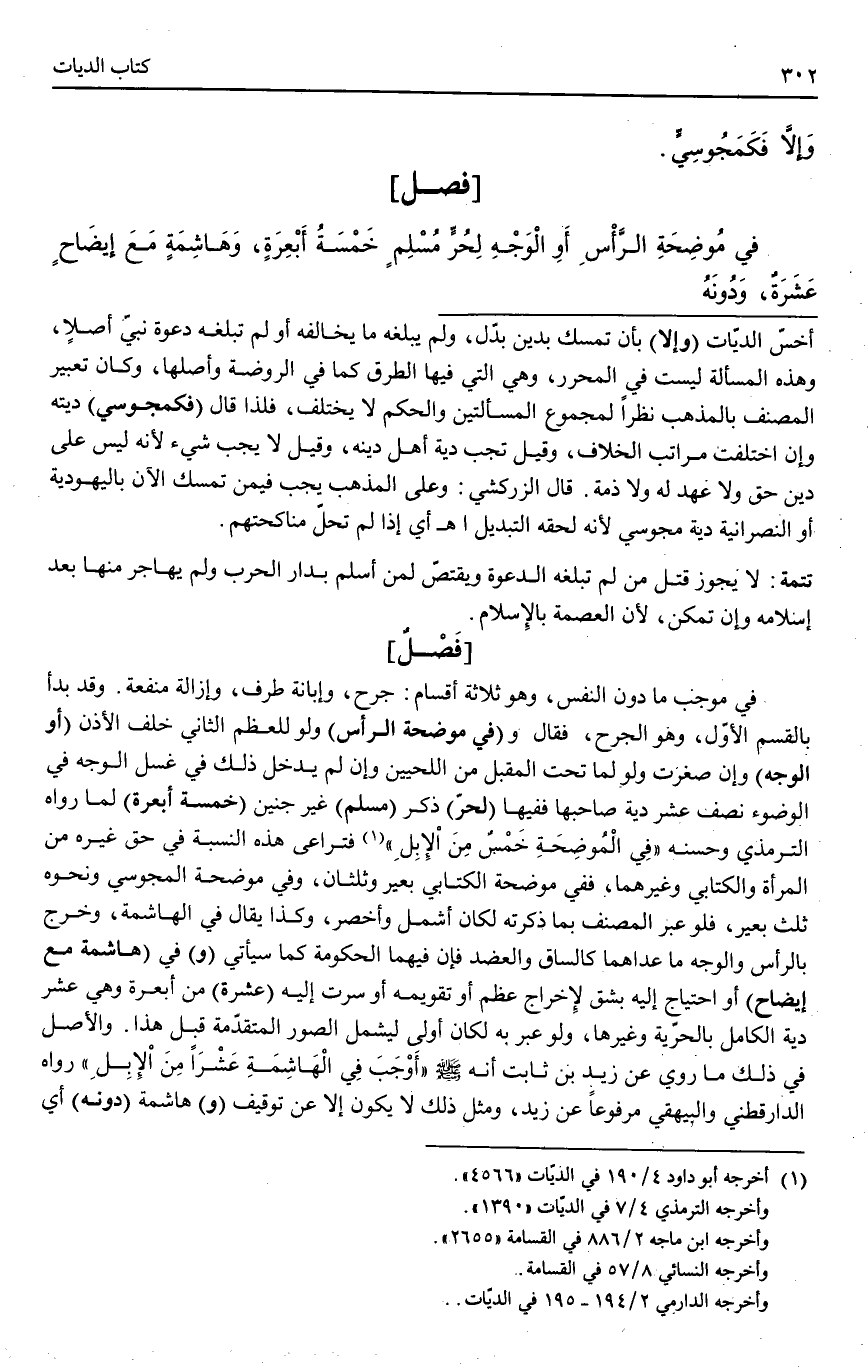 ٣٠٢
كتاب الديات
وَإِلَّا فَكَمَجُوسِيٍّ.
[فصــل]
في مُوضِحَةِ الـرَّأْسِ أَوِ الْوَجْـهِ لِحُرٍّ مُسْلِمٍ خَمْسَـةُ أَبْعِرَةٍ، وَهَـاشِمَةٍ مَـعَ إِيضَاحٍ
عَشَرَةٌ، وَدُونَهُ
أخسّ الديّات (وإلا) بأن تمسك بدين بدّل، ولم يبلغه ما يخـالفه أو لم تبلغـه دعوة نبيّ أصـلاٍ،
وهذه المسألة ليست في المحرر، وهي التي فيها الطرق كما في الروضـة وأصلها، وكـان تعبير
المصنف بالمذهب نظراً لمجموع المسـألتين والحكم لا يختلف، فلذا قال (فكمجـوسي) ديته
وإن اختلفت مـراتب الخلاف، وقيـل تجب دية أهـل دينه، وقيـل لا يجب شيء لأنه ليس على
دين حق ولا عهد له ولا ذمة. قال الزركشي: وعلى المذهب يجب فيمن تمسك الآن باليهودية
أو النصرانية دية مجوسي لأنه لحقه التبديل ا هـ أي إذا لم تحلّ مناكحتهم.
تتمة: لا يجوز قتـل من لم تبلغه الـدعوة ويقتصّ لمن أسلم بـدار الحرب ولم يهـاجر منهـا بعد
إسلامه وإن تمكن، لأن العصمة بالإِسلام.
[فَصْــلٌ]
في موجب ما دون النفس، وهو ثلاثة أقسام: جرح، وإبانة طرف، وإزالة منفعة. وقد بدأ
بالقسم الأوّل، وهو الجرح، فقال و(في موضحة الـرأس) ولو للعـظم الثاني خلف الأذن (أو
الوجه) وإن صغرت ولو لما تحت المقبل من اللحيين وإن لم يـدخل ذلـك في غسل الـوجه في
الوضوء نصف عشر دية صاحبها ففيهـا (لحرّ) ذكـر (مسلم) غير جنين (خمسـة أبعرة) لمـا رواه
التـرمذي وحسنـه «فِي الْمُوضِحَـةِ خَمْسٌ مِنَ الْإِبِلِ»(١) فتـراعى هذه النسبـة في حق غيره من
المرأة والكتابي وغيرهما، ففي موضحة الكتـابي بعير وثلثـان، وفي موضحـة المجوسي ونحـوه
ثلث بعير، فلو عبر المصنف بما ذكرته لكان أشمـل وأخصر، وكـذا يقال في الهـاشمة، وخـرج
بالرأس والوجه ما عداهما كالساق والعضد فإن فيهما الحكومة كما سيأتي (و) في (هـاشمة مـع
إيضاح) أو احتياج إليه بشق لإِخراج عظم أو تقويمـه أو سرت إليـه (عشرة) من أبعـرة وهي عشر
دية الكامل بالحرّية وغيرها، ولو عبر به لكان أولى ليشمل الصور المتقدّمة قبـل هذا. والأصـل
في ذلـك مـا روي عن زيـد بن ثـابت أنـه ﷺ «أَوْجَبَ فِي الْهَـاشِمَـةِ عَشْـراً مِنَ الْإِبِـلِ» رواه
الدارقطني والبيهقي مرفوعاً عن زيد، ومثل ذلك لا يكون إلا عن توقيف (و) هاشمة (دونـه) أي
(١) أخرجه أبو داود ٤/ ١٩٠ في الديّات «٤٥٦٦».
وأخرجه الترمذي ٤/ ٧ في الديّات «١٣٩٠».
وأخرجه ابن ماجه ٢/ ٨٨٦ في القسامة «٢٦٥٥».
وأخرجه النسائي ٨/ ٥٧ في القسامة..
وأخرجه الدارمي ٢/ ١٩٤ - ١٩٥ في الديّات..